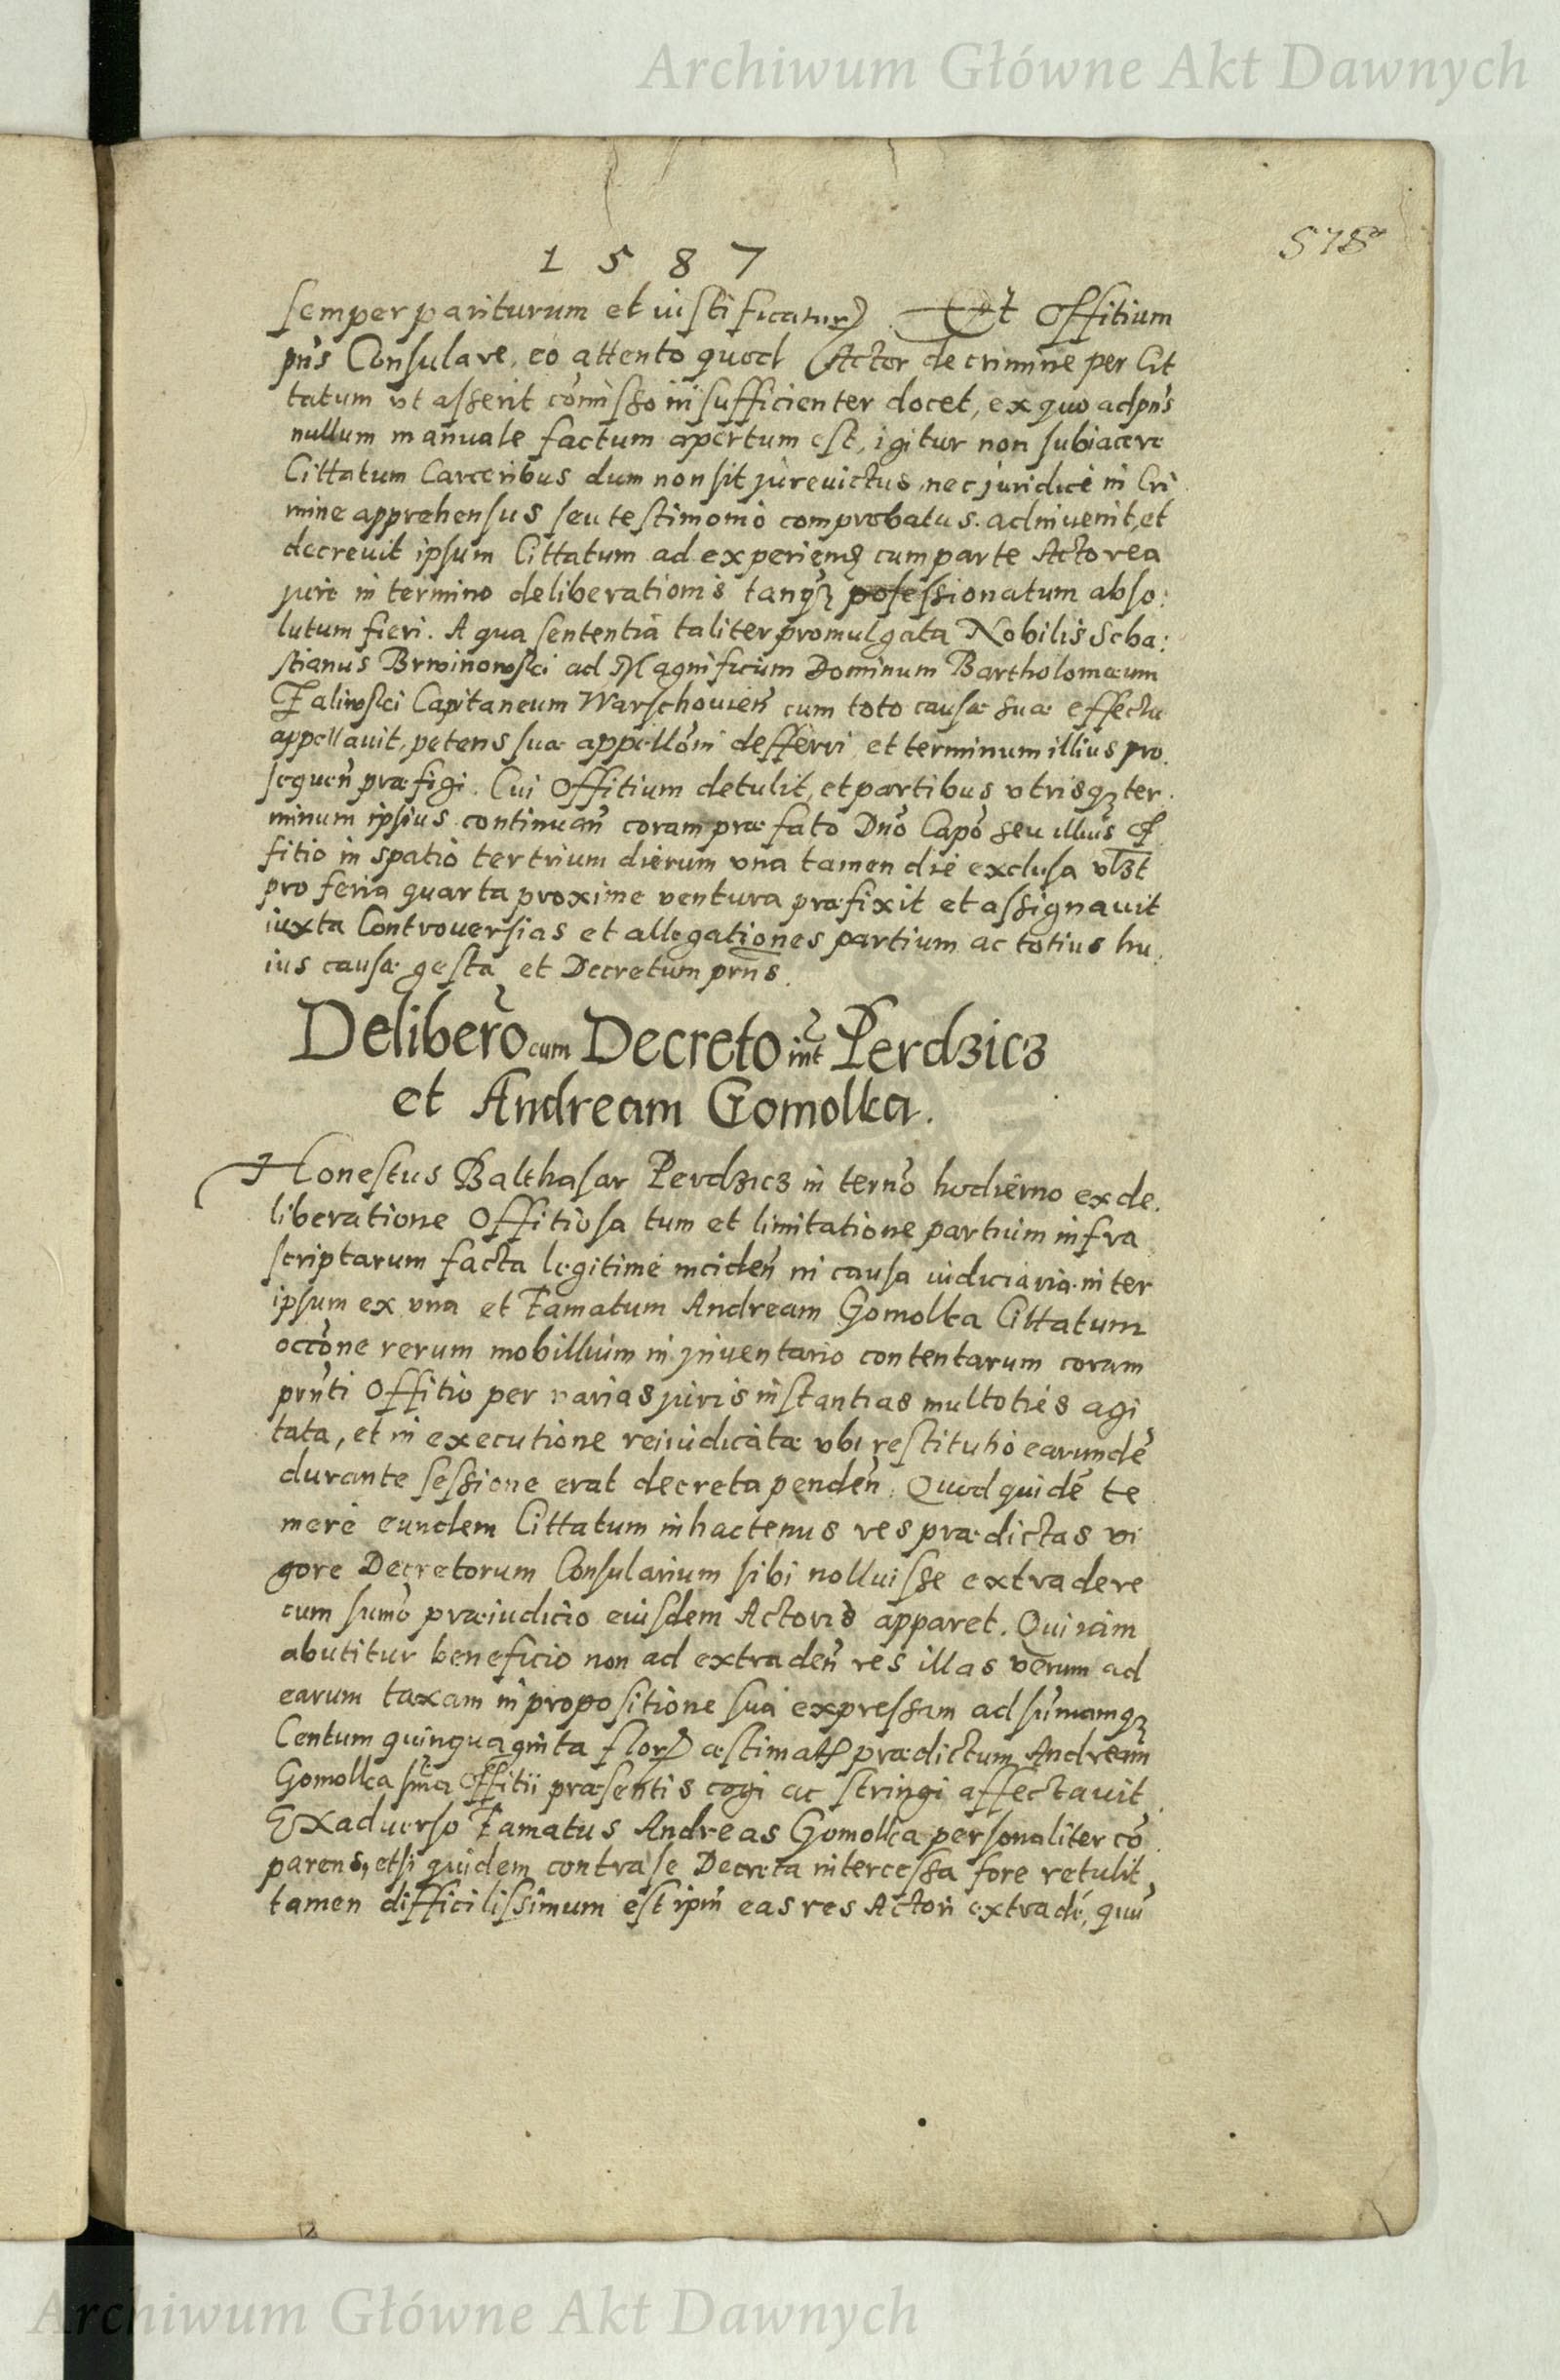 Archiwum Główne Akt Dawnych
1587
578
semper pariturum et iustificatur Et Offitium
pn̄s Consulare, eo attento quod Actor de crimine per Cit
tatum vt asserit com̄isso insufficienter docet, ex quo ad pn̄s
nullum manuale factum apertum est, igitur non subiacere
Cittatum Carceribus dum non sit jurevictus nec juridice in Cri
mine apprehensus seu testimonio comprobatus. adinvenit, et
decrevit ipsum Cittatum ad experien̄ cum parte Actorea
jure in termino deliberationis tanqz possessionatum abso:
lutum fieri. A qua sententia taliter promulgata Nobilis Seba:
stianus Brwinowski ad Magnificum Dominum Bartholomæum
Zaliwski Capitaneum Warschovien̄ cum toto causæ suæ effectu
appellavit, petens suæ appellōni defferri et terminum illius pro
sequen̄ præfigi. Cui Offitium detulit, et partibus vtrisqz ter.
minum ipsius continuan̄ coram præfato Dn̄o Capō seu illius Of
fitio in spatio tertrium dierum vna tamen die exclusa vlzt
pro feria quarta proxime ventura præfixit et assignauit
iuxta Controuersias et allegationes partium ac totius hu
ius causæ gesta et Decretum prn̄s.
Deliberō cum Decreto int Perdzicz
et Andream Gomolka.
Honestus Balthasar Perdzicz in ternō hodierno ex de.
liberatione Offitiosa tum et limitatione partium infra
scriptarum facta legitime inciden̄ in causa iudiciaria inter
ipsum ex vna et Famatum Andream Gomolka Cittatum
occōne rerum mobillium in jnventario contentarum coram
prn̄ti Offitio per varias juris instantias multoties agi
tata, et in executione reiiudicatæ vbi restitutio earundē
durante sessione erat decreta penden̄. Quod quidē te
mere eundem Cittatum inhactenus res prædictas vi
gore Decretorum Consularium sibi nolluisse extradere
cum sum̄o præiudicio eiusdem Actoris apparet. Qui iam
abutitur beneficio non ad extraden̄ res illas verum ad
earum taxam in propositione sua expressam ad sum̄amqz
Centum quinquaginta flor æstimat prædictum Andream
Gomolka sn̄ia Offitii præsentis cogi ac stringi affectauit.
Exaduerso Famatus Andreas Gomolka personaliter cō
parens, etsi quidem contra se Decreta intercessa fore retulit,
tamen difficilissimum est ipm̄ eas res Actori extradē, quū
Archiwum Główne Akt Dawnych